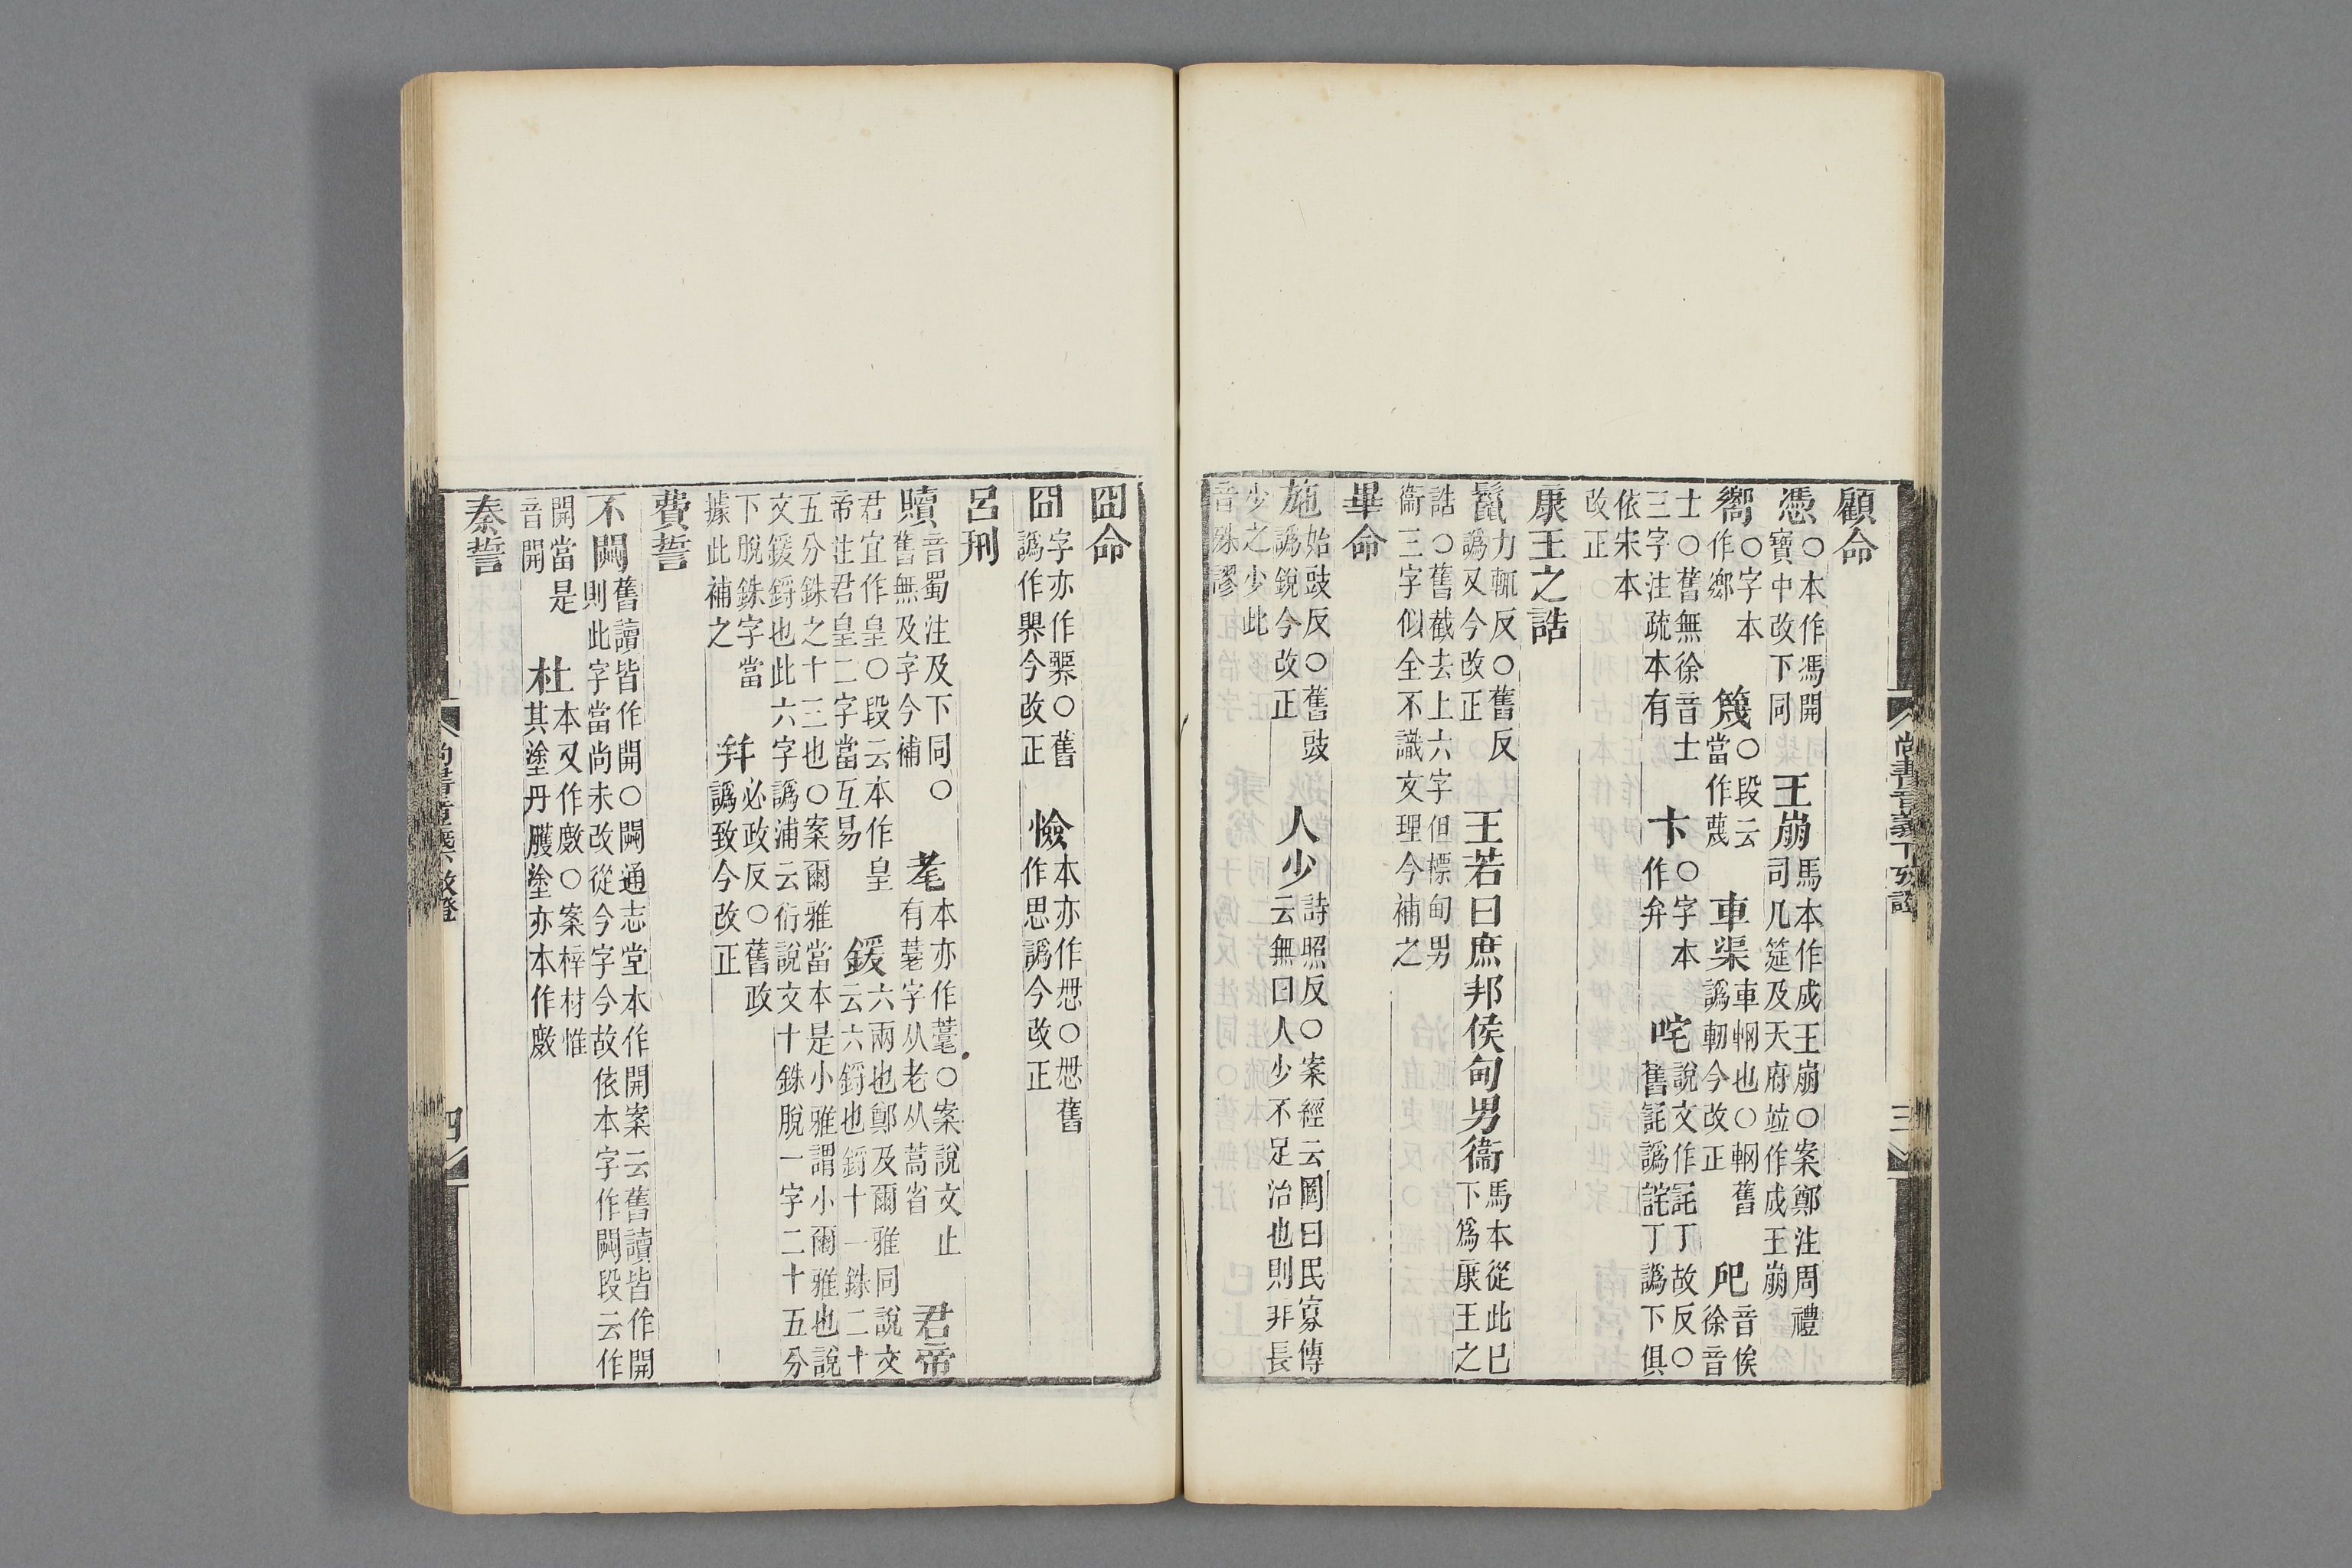 顧命
憑○本作馮開寶中改下同 王崩馬本作成王崩○案鄭注周禮司几筵及天府竝作成王崩
嚮○字本作鄉 篾○段云當作蔑 車渠車輞也○輞舊譌軔今改正 戺音俟徐音
士○舊無徐音士三字注疏本有 卞○字本作弁 咤說文作詫丁故反○舊託譌詫丁譌下俱
依宋本改正
康王之誥
髦力輒反○舊反譌又今改正 王若曰庶邦侯甸男衞馬本從此已下爲康王之
誥○舊截去上六字但標甸男衞三字似全不識文理今補之
畢命
施始豉反○舊豉譌銳今改正 人少詩照反○案經云圉曰民寡傳云無曰人少不足治也則非長
少之少此音殊謬
尚書音義下攷證
三
冏命
冏字亦作煛○舊譌作臩今改正 憸本亦作愢○愢舊作思譌今改正
呂刑
贖音蜀注及下同○舊無及字今補 耄本亦作薹○案說文止有薹字从老从蒿省 君帝
君宜作皇○段云本作皇帝注君皇二字當互易 鍰六兩也鄭及爾雅同說文云六鋝也鋝十一銖二十
五分銖之十三也○案爾雅當本是小雅謂小爾雅也說文鍰鋝也此六字譌浦云衍說文十銖脫一字二十五分
下脫銖字當據此補之 幷必政反○舊政譌致今改正
費誓
不開舊讀皆作開○開通志堂本作開案云舊讀皆作開則此字當尚未改從今字今故依本字作開段云作
開當是音開 杜本又作敷○案梓材惟其塗丹雘塗亦本作敷
秦誓
尚書音義下攷證
四